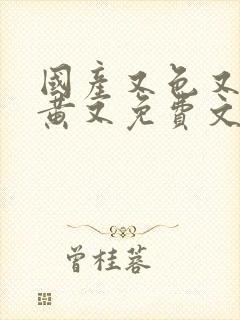 國產又色又
黃又免費文
曾桂蓉